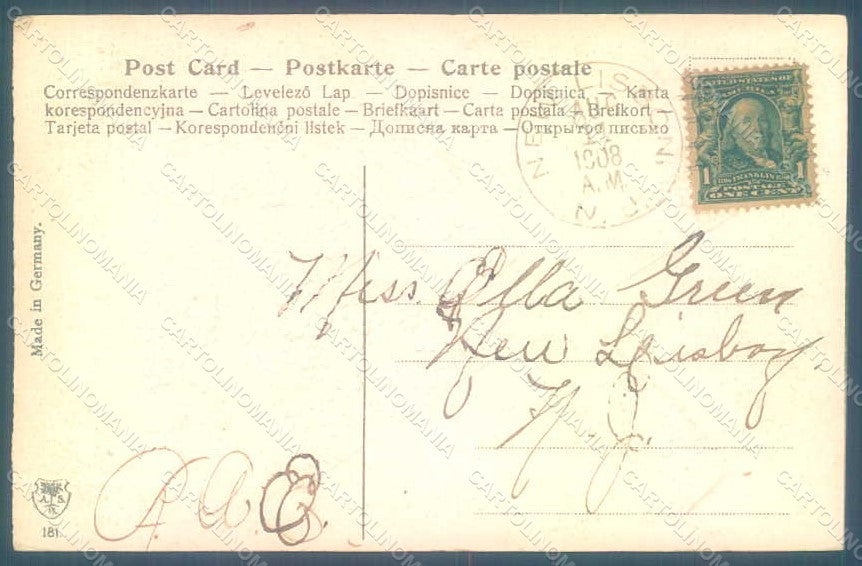 Post Card — Postkarte — Carte postale
Correspondenzkarte — Levelező Lap — Dopisnice — Dopisnica — Karta
korespondencyjna — Cartolina postale — Briefkaart — Carta postala — Brefkort —
Tarjeta postal — Korespondenční lístek — Дописна карта — Открытое письмо
NEW LISBON N.J.
1908
A.M.
UNITED STATES OF
AMERICA
1 FRANKLIN 1
POSTAGE
ONE CENT
Made in Germany.
Miss Ella Green
New Lisbon
N. J.
R. A. E.
A. S.
181.
CARTOLINOMANIA